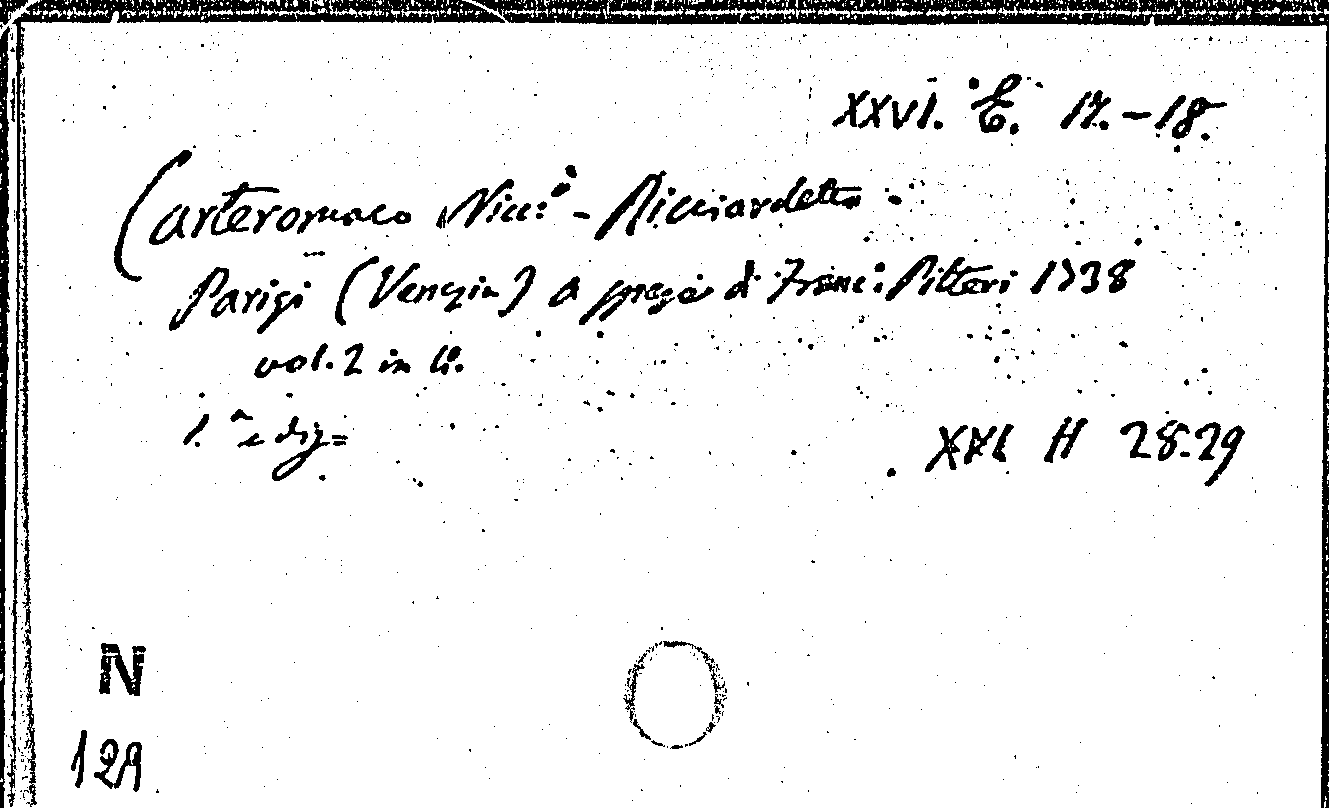 XXVI. E. 17.-18.
Carteromaco Nicc:º - Ricciardetto -
Parigi (Venezia) a spese di Franc:º Pitteri 1738
vol. 2 in 4º.
1.ª ediz=
XXI H 28-29
N
129